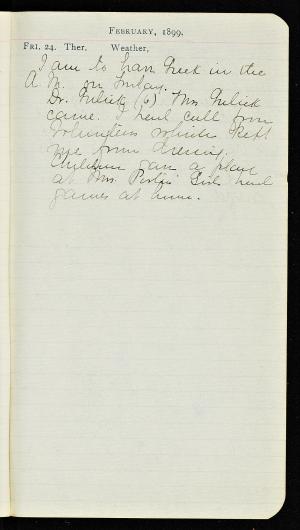 FEBRUARY, 1899.
FRI. 24. Ther. Weather,
I am to have Greek in the
A.M. on Friday.
Dr. Gulick (6) Mrs Gulick
came. I had call from
Volunteers which kept
me from
Children gave a play
at Mrs. Girls had
games at home.